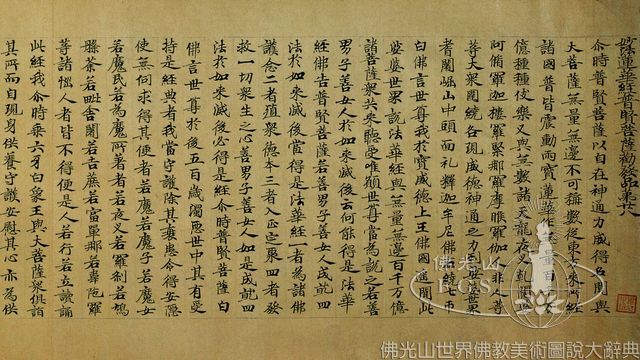 妙蓮華經普賢菩薩勸發品第
尒時普賢菩薩以自在神通力威德名聞與
大菩薩無量無邊不可稱數從東方來所經
諸國普皆震動雨寶蓮華作
億種種伎樂又與無數諸天龍夜叉乾闥婆
阿脩羅迦樓羅緊那羅摩睺羅伽人非人等
大眾圍繞各現威德神通之力 娑婆世界
耆闍崛山中頭面礼釋迦牟尼佛右繞七
白佛言世尊我於寶威德上王佛國遙聞此
娑婆世界說法華經與無量無邊百千万億
諸菩薩眾共來聽受唯願世尊當為說之若善
男子善女人於如來滅後云何能得是法華
經佛告普賢菩薩若善男子善女人成就四
法於如來滅後當得是法華經一者為諸佛
護念二者殖眾德本三者入正定聚四者發
救一切眾生之心善男子善女人如是成就四
法於如來滅後必得是經尒時普賢菩薩白
佛言世尊於後五百歲濁惡世中其有受
持是經典者我當守護除其衰患令得安隱
使無伺求得其便者若魔若魔子若魔女
若魔民若為魔所著者若夜叉若羅剎若鳩
槃荼若毗舍闍若吉蔗若富單那若韋陀羅
等諸惱人者皆不得便是人若行若立讀誦
此經我尒時乘六牙白象王與大菩薩眾俱詣
其所而自現身供養守護安慰其心亦為供
佛光山
FGS
佛光山世界佛教美術圖說大辭典